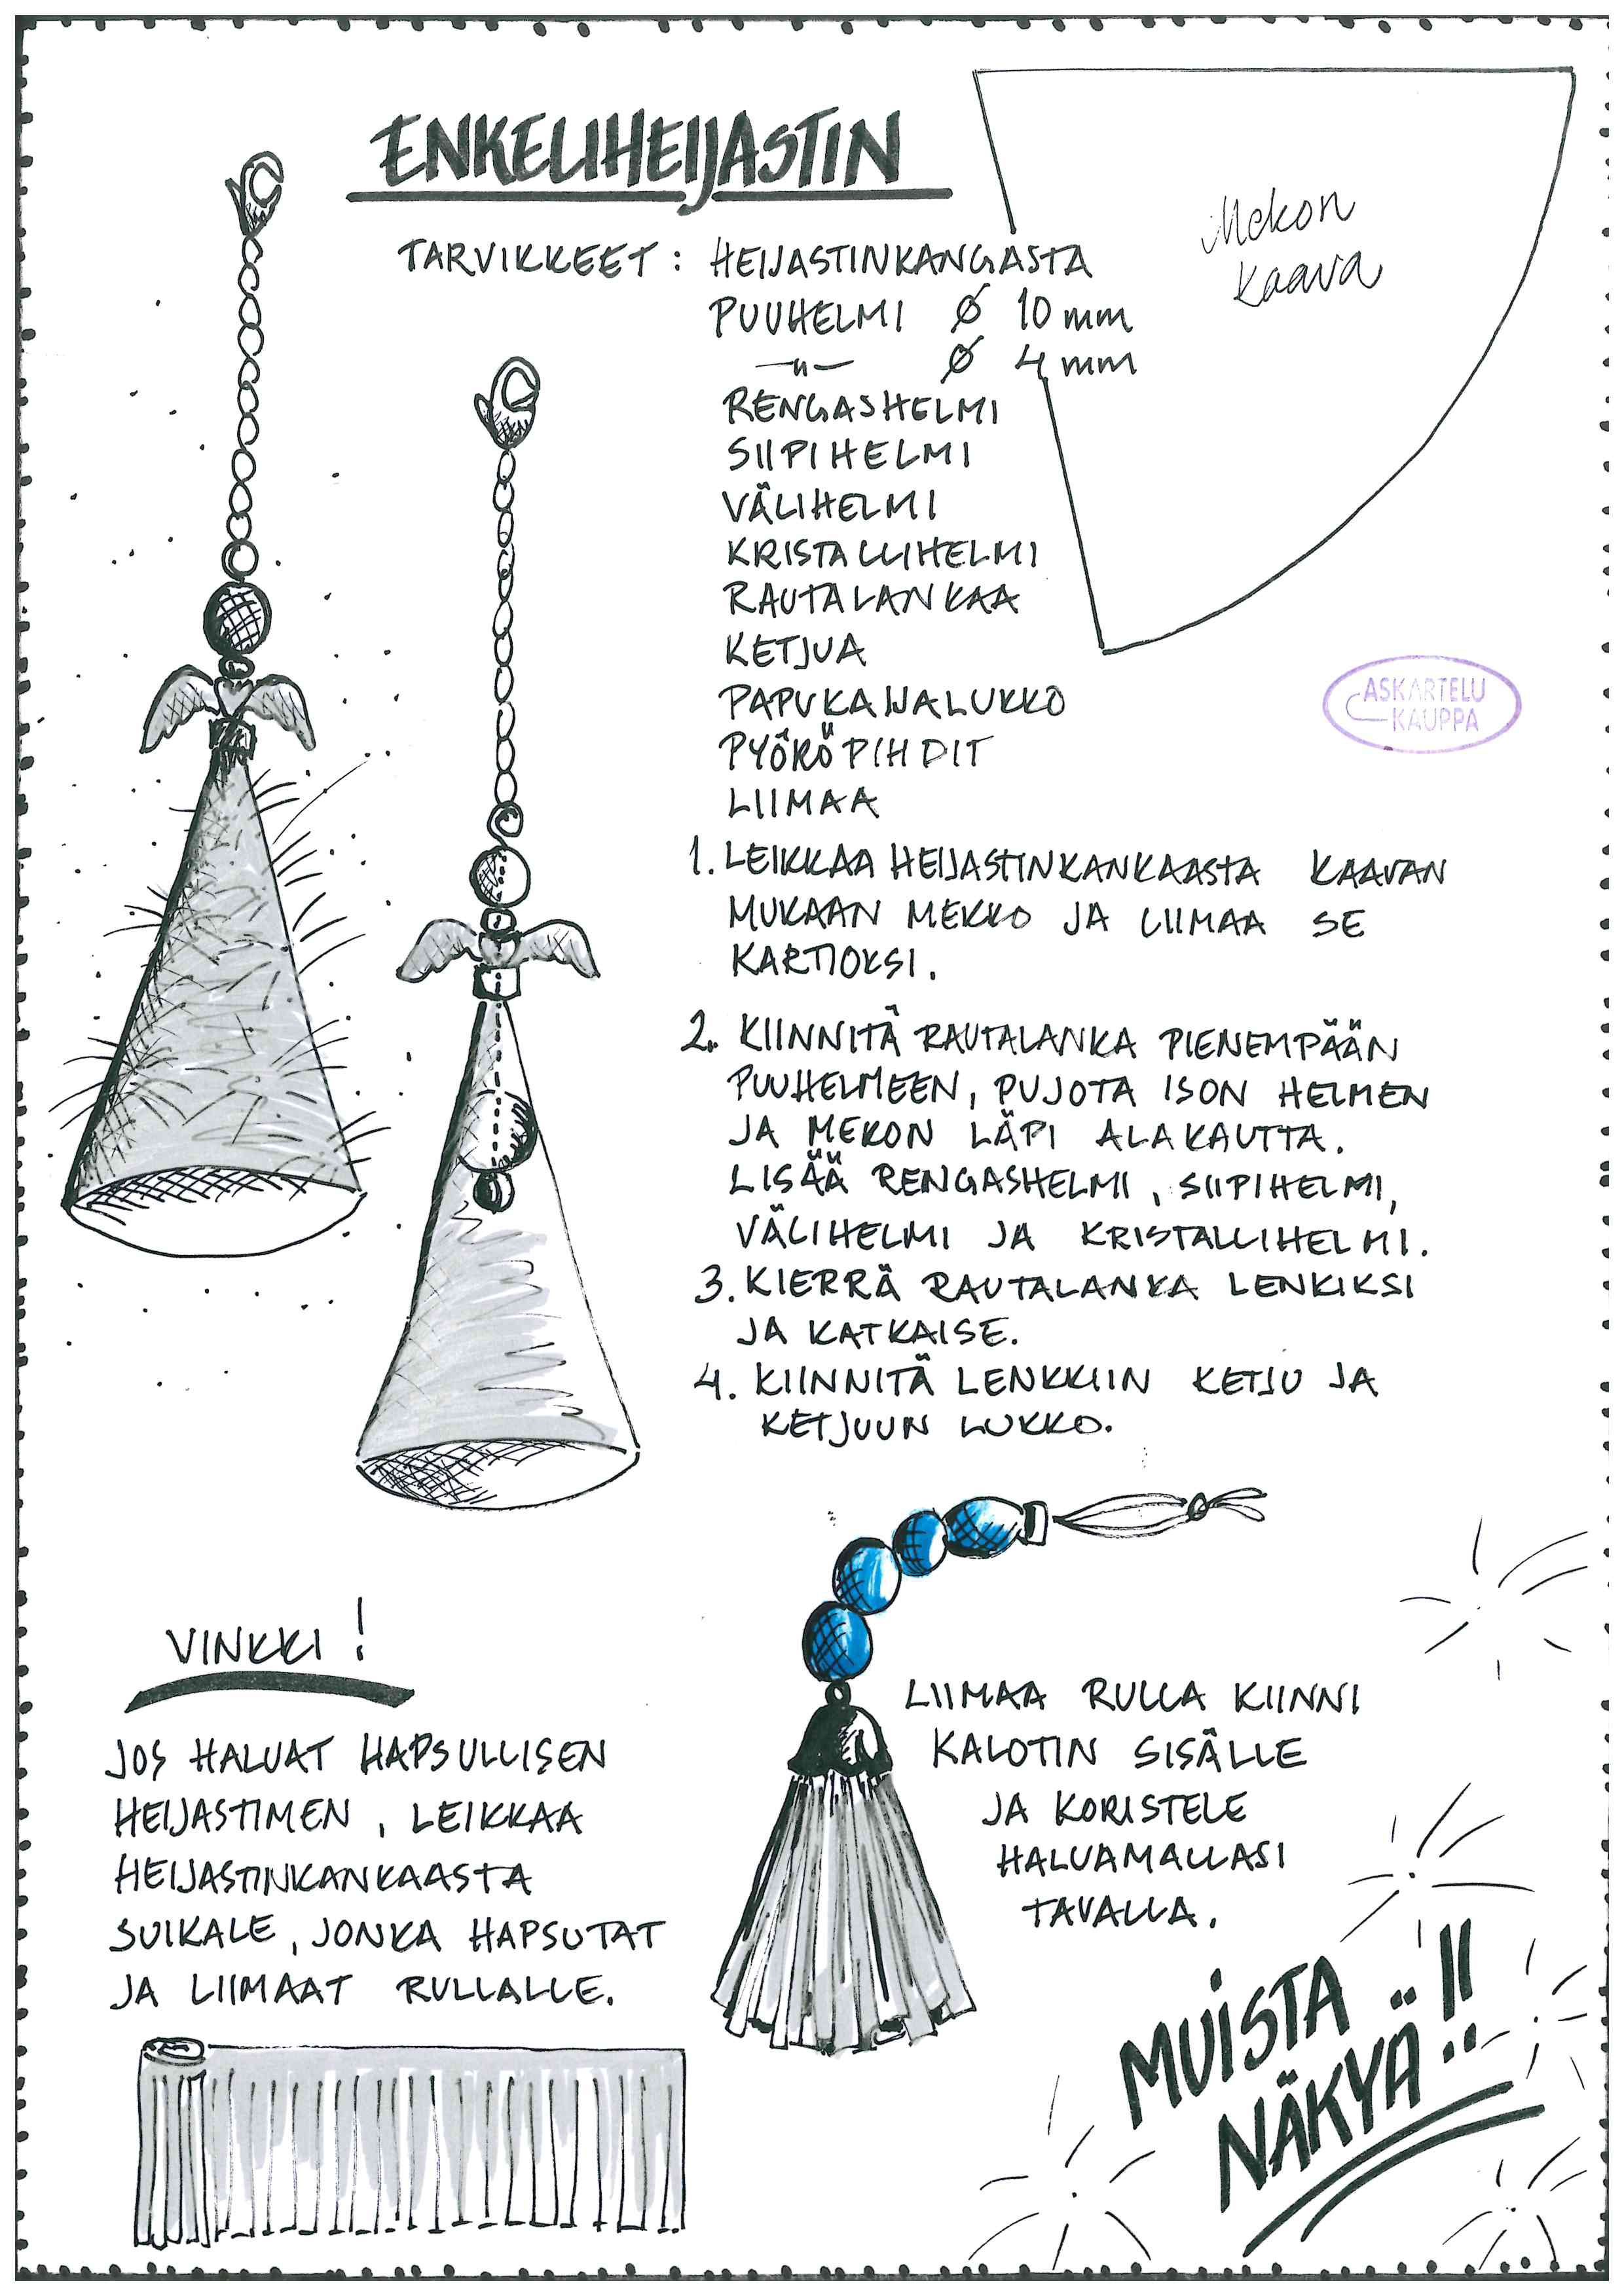 ENKELIHEIJASTIN
Mekon
kaava
TARVIKKEET : HEIJASTINKANGASTA
PUUHELMI Ø 10 mm
—"— Ø 4 mm
RENGASHELMI
SIIPIHELMI
VÄLIHELMI
KRISTALLIHELMI
RAUTALANKAA
KETJUA
PAPUKAIJALUKKO
PYÖRÖPIHDIT
LIIMAA
ASKARTELU
KAUPPA
1. LEIKKAA HEIJASTINKANKAASTA KAAVAN
MUKAAN MEKKO JA LIIMAA SE
KARTIOKSI.
2. KIINNITÄ RAUTALANKA PIENEMPÄÄN
PUUHELMEEN, PUJOTA ISON HELMEN
JA MEKON LÄPI ALAKAUTTA.
LISÄÄ RENGASHELMI, SIIPIHELMI,
VÄLIHELMI JA KRISTALLIHELMI.
3. KIERRÄ RAUTALANKA LENKIKSI
JA KATKAISE.
4. KIINNITÄ LENKKIIN KETJU JA
KETJUUN LUKKO.
VINKKI !
JOS HALUAT HAPSULLISEN
HEIJASTIMEN, LEIKKAA
HEIJASTINKANKAASTA
SUIKALE, JONKA HAPSUTAT
JA LIIMAAT RULLALLE.
LIIMAA RULLA KIINNI
KALOTIN SISÄLLE
JA KORISTELE
HALUAMALLASI
TAVALLA.
MUISTA
NÄKYÄ !!